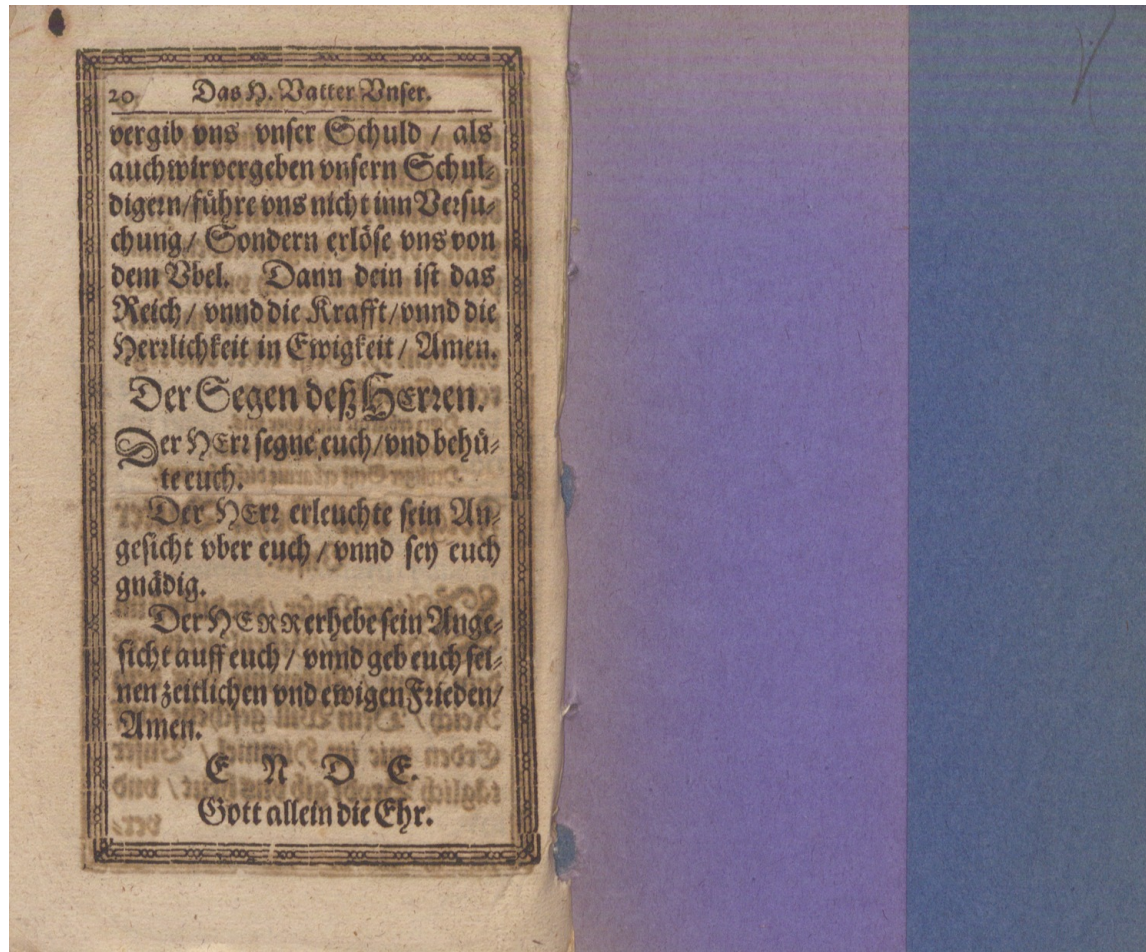 20 Das H. Vatter Vnser.
vergib vns vnser Schuld / als
auch wir vergeben vnsern Schul-
digern/führe vns nicht inn Versu-
chung/ Sondern erlöse vns von
dem Vbel. Dann dein ist das
Reich / vnnd die Krafft/vnnd die
Herrlichkeit in Ewigkeit / Amen.
Der Segen deß HErren.
Der HErr segne euch/vnd behü-
te euch.
Der HErr erleuchte sein An-
gesicht vber euch / vnnd sey euch
gnädig.
Der HERR erhebe sein Ange-
sicht auff euch / vnnd geb euch sei-
nen zeitlichen vnd ewigen Frieden/
Amen.
E N D E.
Gott allein die Ehr.